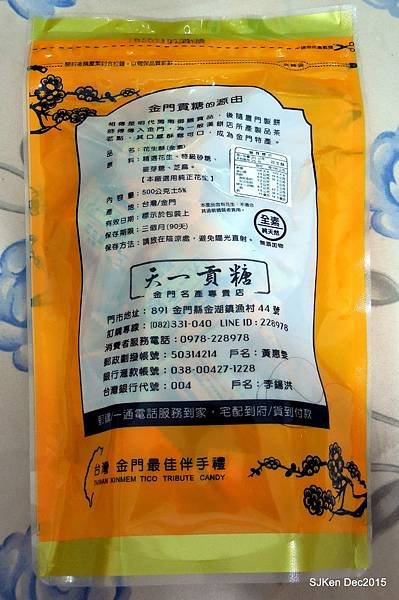 金門貢糖的源由
相傳是明代閩南御膳貢品，後隨廈門製餅
師傅傳入金門，為一般漢餅店所產製品茶
老點，其口感酥鬆可口，成為金門特產。
品名：花生酥(全素)
成份：精選花生、特級砂糖、
麥芽糖、芝麻。
【本廠選用純正花生】
內容量：500公克±5%
產地：台灣/金門
有效日期：標示於包裝上
保存期限：三個月(90天)
保存方法：請放在陰涼處，避免陽光直射。
全素
純天然
無添加物
天一貢糖
金門名產專賣店
門市地址：891 金門縣金湖鎮漁村44號
訂購專線：(082)331-040 LINE ID：228978
消費者服務電話：0978-228978
郵政劃撥帳號：50314214 戶名：黃惠雯
銀行滙款帳號：038-00427-1228
台灣銀行代號：004 戶名：李錫洪
郵購/一通電話服務到家，宅配到府/貨到付款
台灣 金門最佳伴手禮
TAIWAN KINMEM TICO TRIBUTE CANDY
SJKen Dec2015